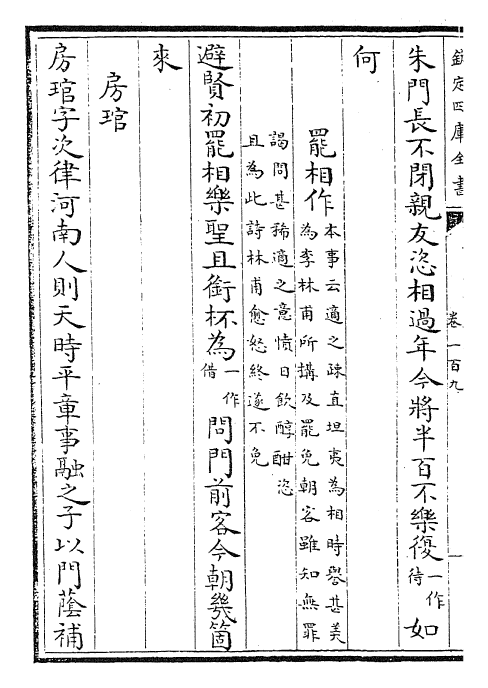 欽定四庫全書
卷一百九
朱門長不閉親友恣相過年今將半百不樂復一作待如
何
罷相作本事云適之疎直坦夷為相時譽甚美
為李林甫所搆及罷免朝客雖知無罪
謁問甚稀適之意憤日飲醇酣恣
且為此詩林甫愈怒終遂不免
避賢初罷相樂聖且銜杯為一作借問門前客今朝幾箇
來
房琯
房琯字次律河南人則天時平章事融之子以門蔭補